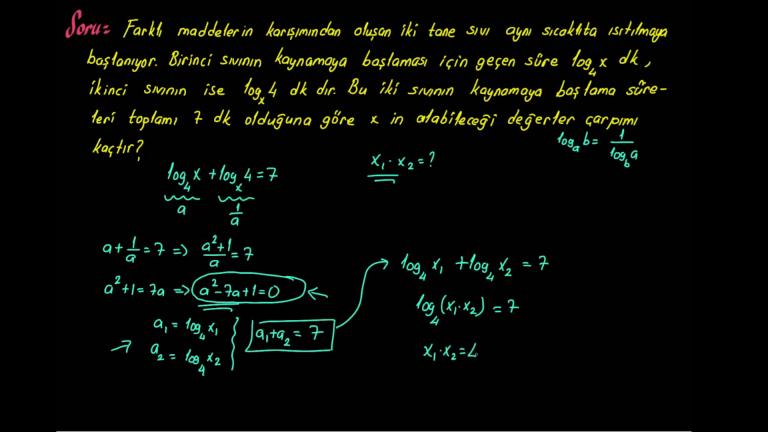 Soru: Farklı maddelerin karışımından oluşan iki tane sıvı aynı sıcaklıkta ısıtılmaya
başlanıyor. Birinci sıvının kaynamaya başlaması için geçen süre log₄x dk,
ikinci sıvının ise logₓ4 dk dır. Bu iki sıvının kaynamaya başlama süre-
leri toplamı 7 dk olduğuna göre x in alabileceği değerler çarpımı
kaçtır?
logₐb = 1/log_b a
x₁·x₂=?
log₄x + logₓ4 = 7
a 1/a
a + 1/a = 7 => (a²+1)/a = 7
a²+1=7a => a²-7a+1=0
a₁ = log₄x₁
a₂ = log₄x₂
a₁+a₂ = 7
log₄x₁ + log₄x₂ = 7
log₄(x₁·x₂) = 7
x₁·x₂=4